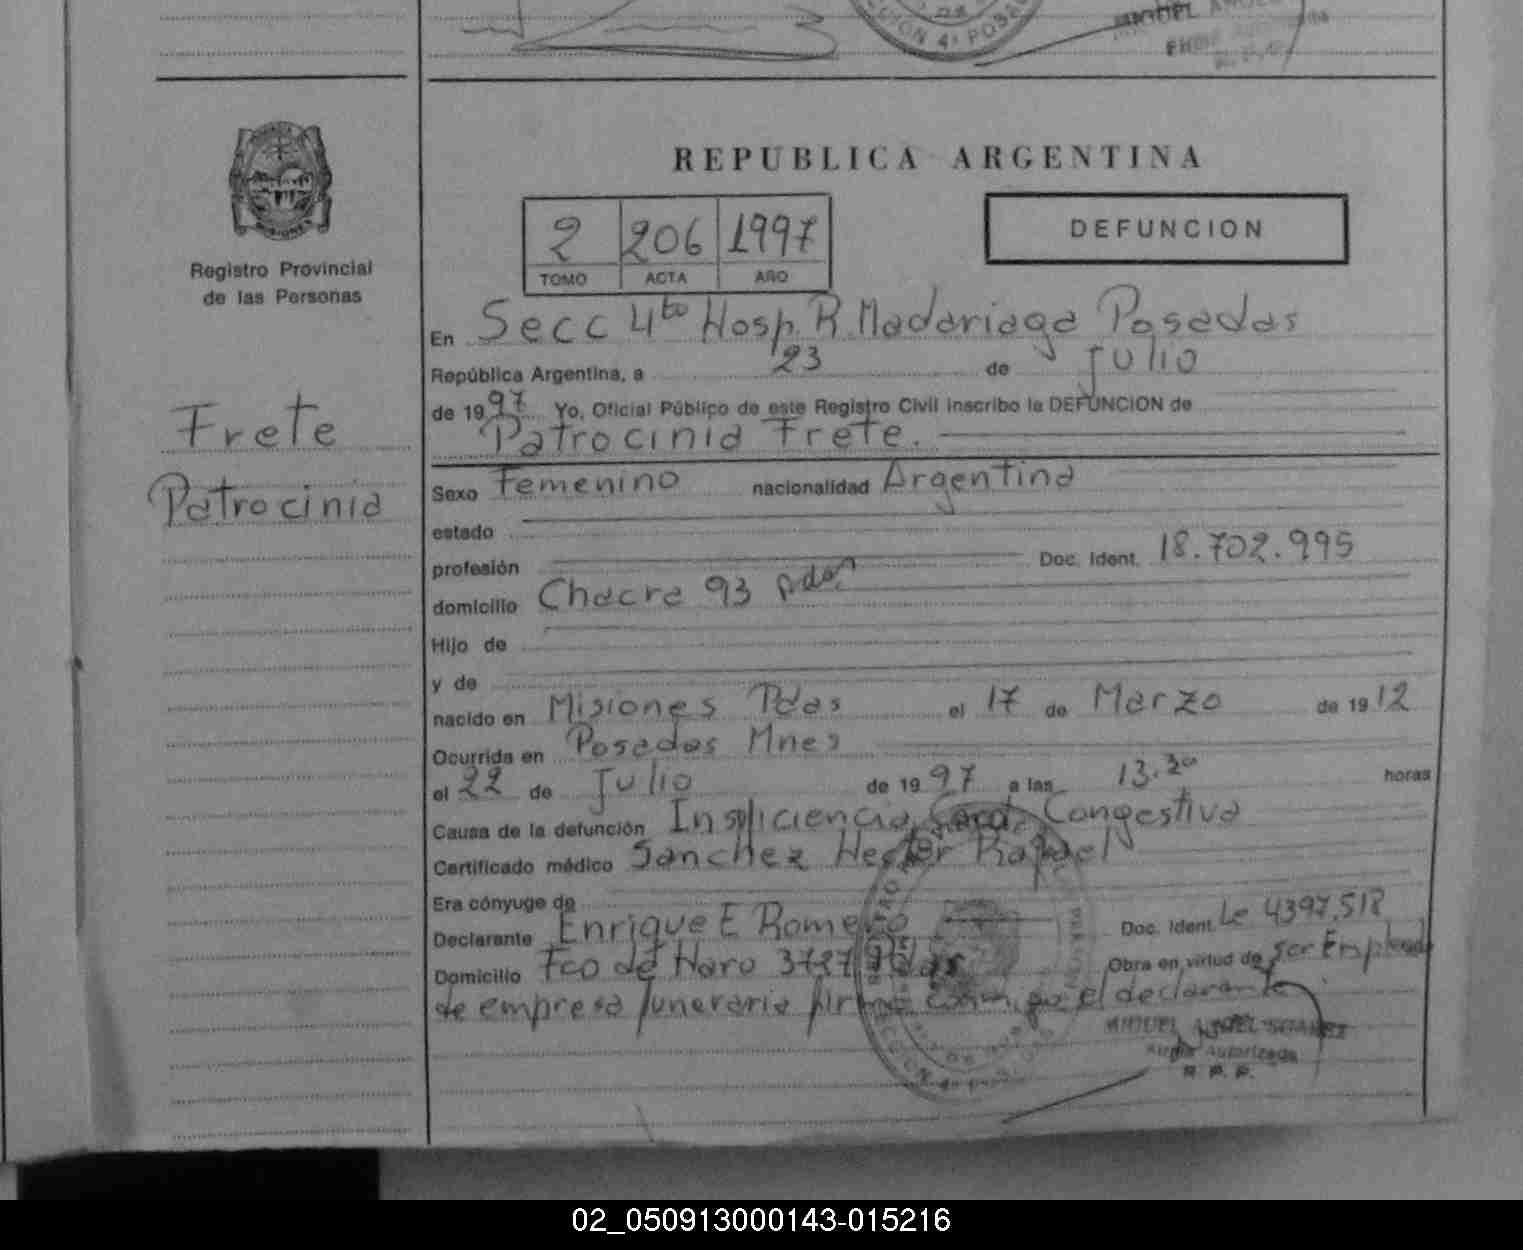 CCION 4ª POSADAS
MIGUEL
REPUBLICA ARGENTINA
2 206 1997
TOMO ACTA AÑO
DEFUNCION
MISIONES
Registro Provincial
de las Personas
Frete
Patrocinia
En Secc 4to Hosp. R. Madariaga Posadas
República Argentina, a 23 de Julio
de 1997 Yo, Oficial Público de este Registro Civil inscribo la DEFUNCION de
Patrocinia Frete.
Sexo Femenino nacionalidad Argentina
estado
profesión Doc. Ident. 18.702.995
domicilio Chacra 93 pdas
Hijo de
y de
nacido en Misiones Pdas el 17 de Marzo de 1912
Ocurrida en Posadas Mnes
el 22 de Julio de 1997 a las 13.30 horas
Causa de la defunción Insuficiencia Card. Congestiva
Certificado médico Sanchez Hector Rafael
Era cónyuge de
Declarante Enrique E Romero Doc. Ident. Le 4397.518
Domicilio Fco de Haro 3727 Pdas Obra en virtud de ser Empleado
de empresa funeraria firma conmigo el declarante
MIGUEL ANGEL SUAREZ
Firma Autorizada
R. P. P.
CCION 4ª
02_050913000143-015216